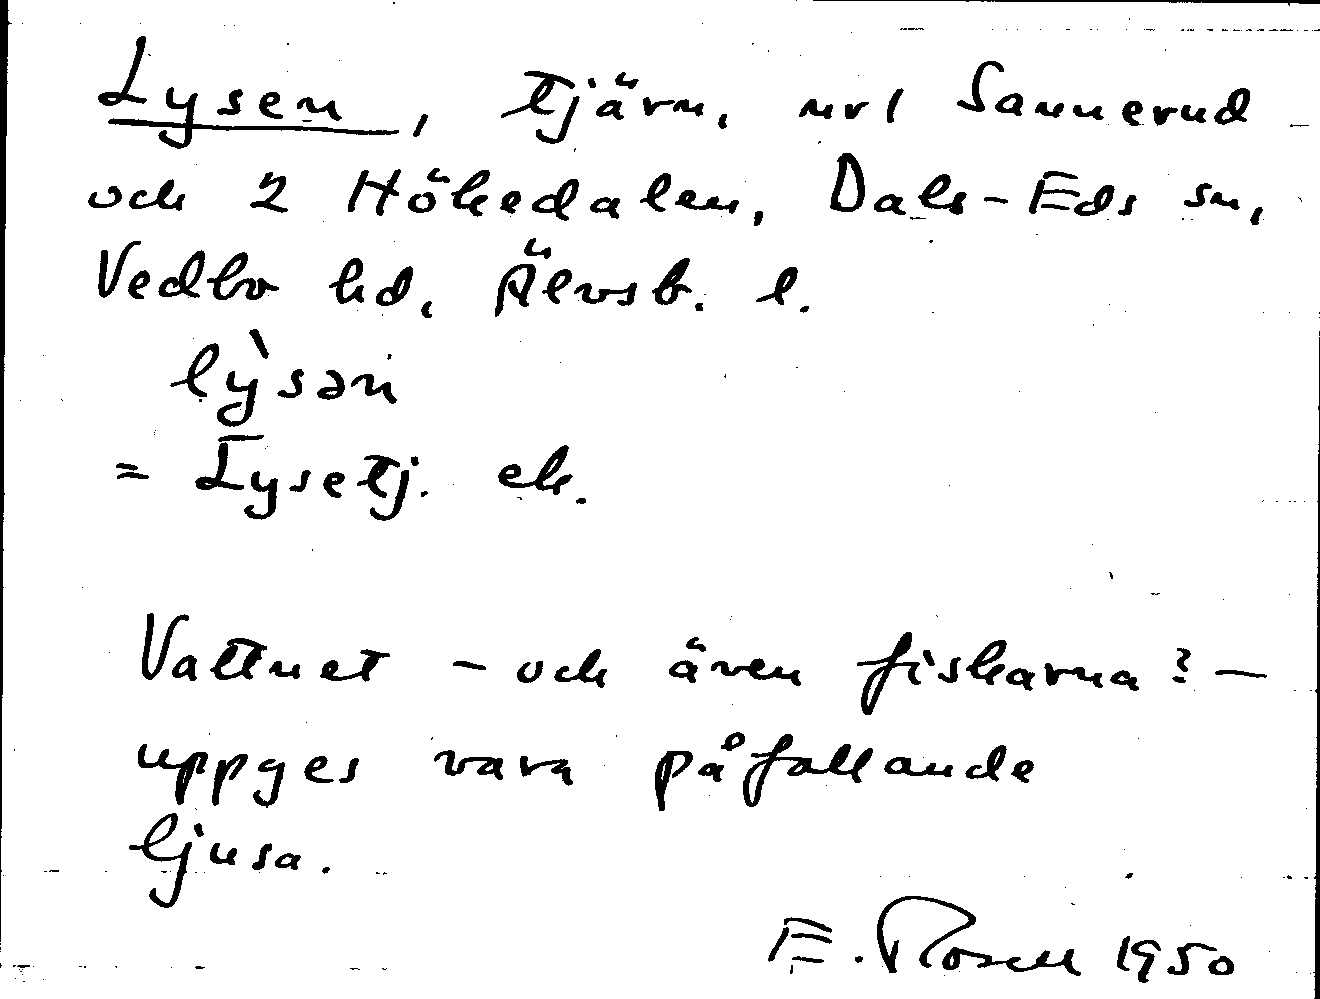 Lysen, tjärn, nv 1 Sannerud
och 2 Hökedalen, Dals-Eds sn,
Vedbo hd, Älvsb. l.
lỳsən
= Lysetj. ek.
Vattnet - och även fiskarna? -
uppges vara påfallande
ljusa.
E. Rosell 1950